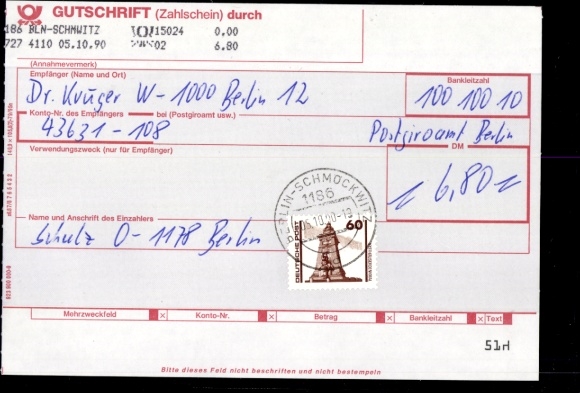 GUTSCHRIFT (Zahlschein) durch
186 BLN-SCHMWITZ 15024 0,00
727 4110 05.10.90 02 6.80
(Annahmevermerk)
Empfänger (Name und Ort) Bankleitzahl
Dr. Krüger W-1000 Berlin 12 100 100 10
Konto-Nr. des Empfängers bei (Postgiroamt usw.)
43631-108 Postgiroamt Berlin
Verwendungszweck (nur für Empfänger) DM
6,80
BERLIN-SCHMÖCKWITZ
1186
Name und Anschrift des Einzahlers
Schulz O-1178 Berlin
DEUTSCHE POST
60
Mehrzweckfeld X Konto-Nr. X Betrag X Bankleitzahl X Text
51H
Bitte dieses Feld nicht beschriften und nicht bestempeln